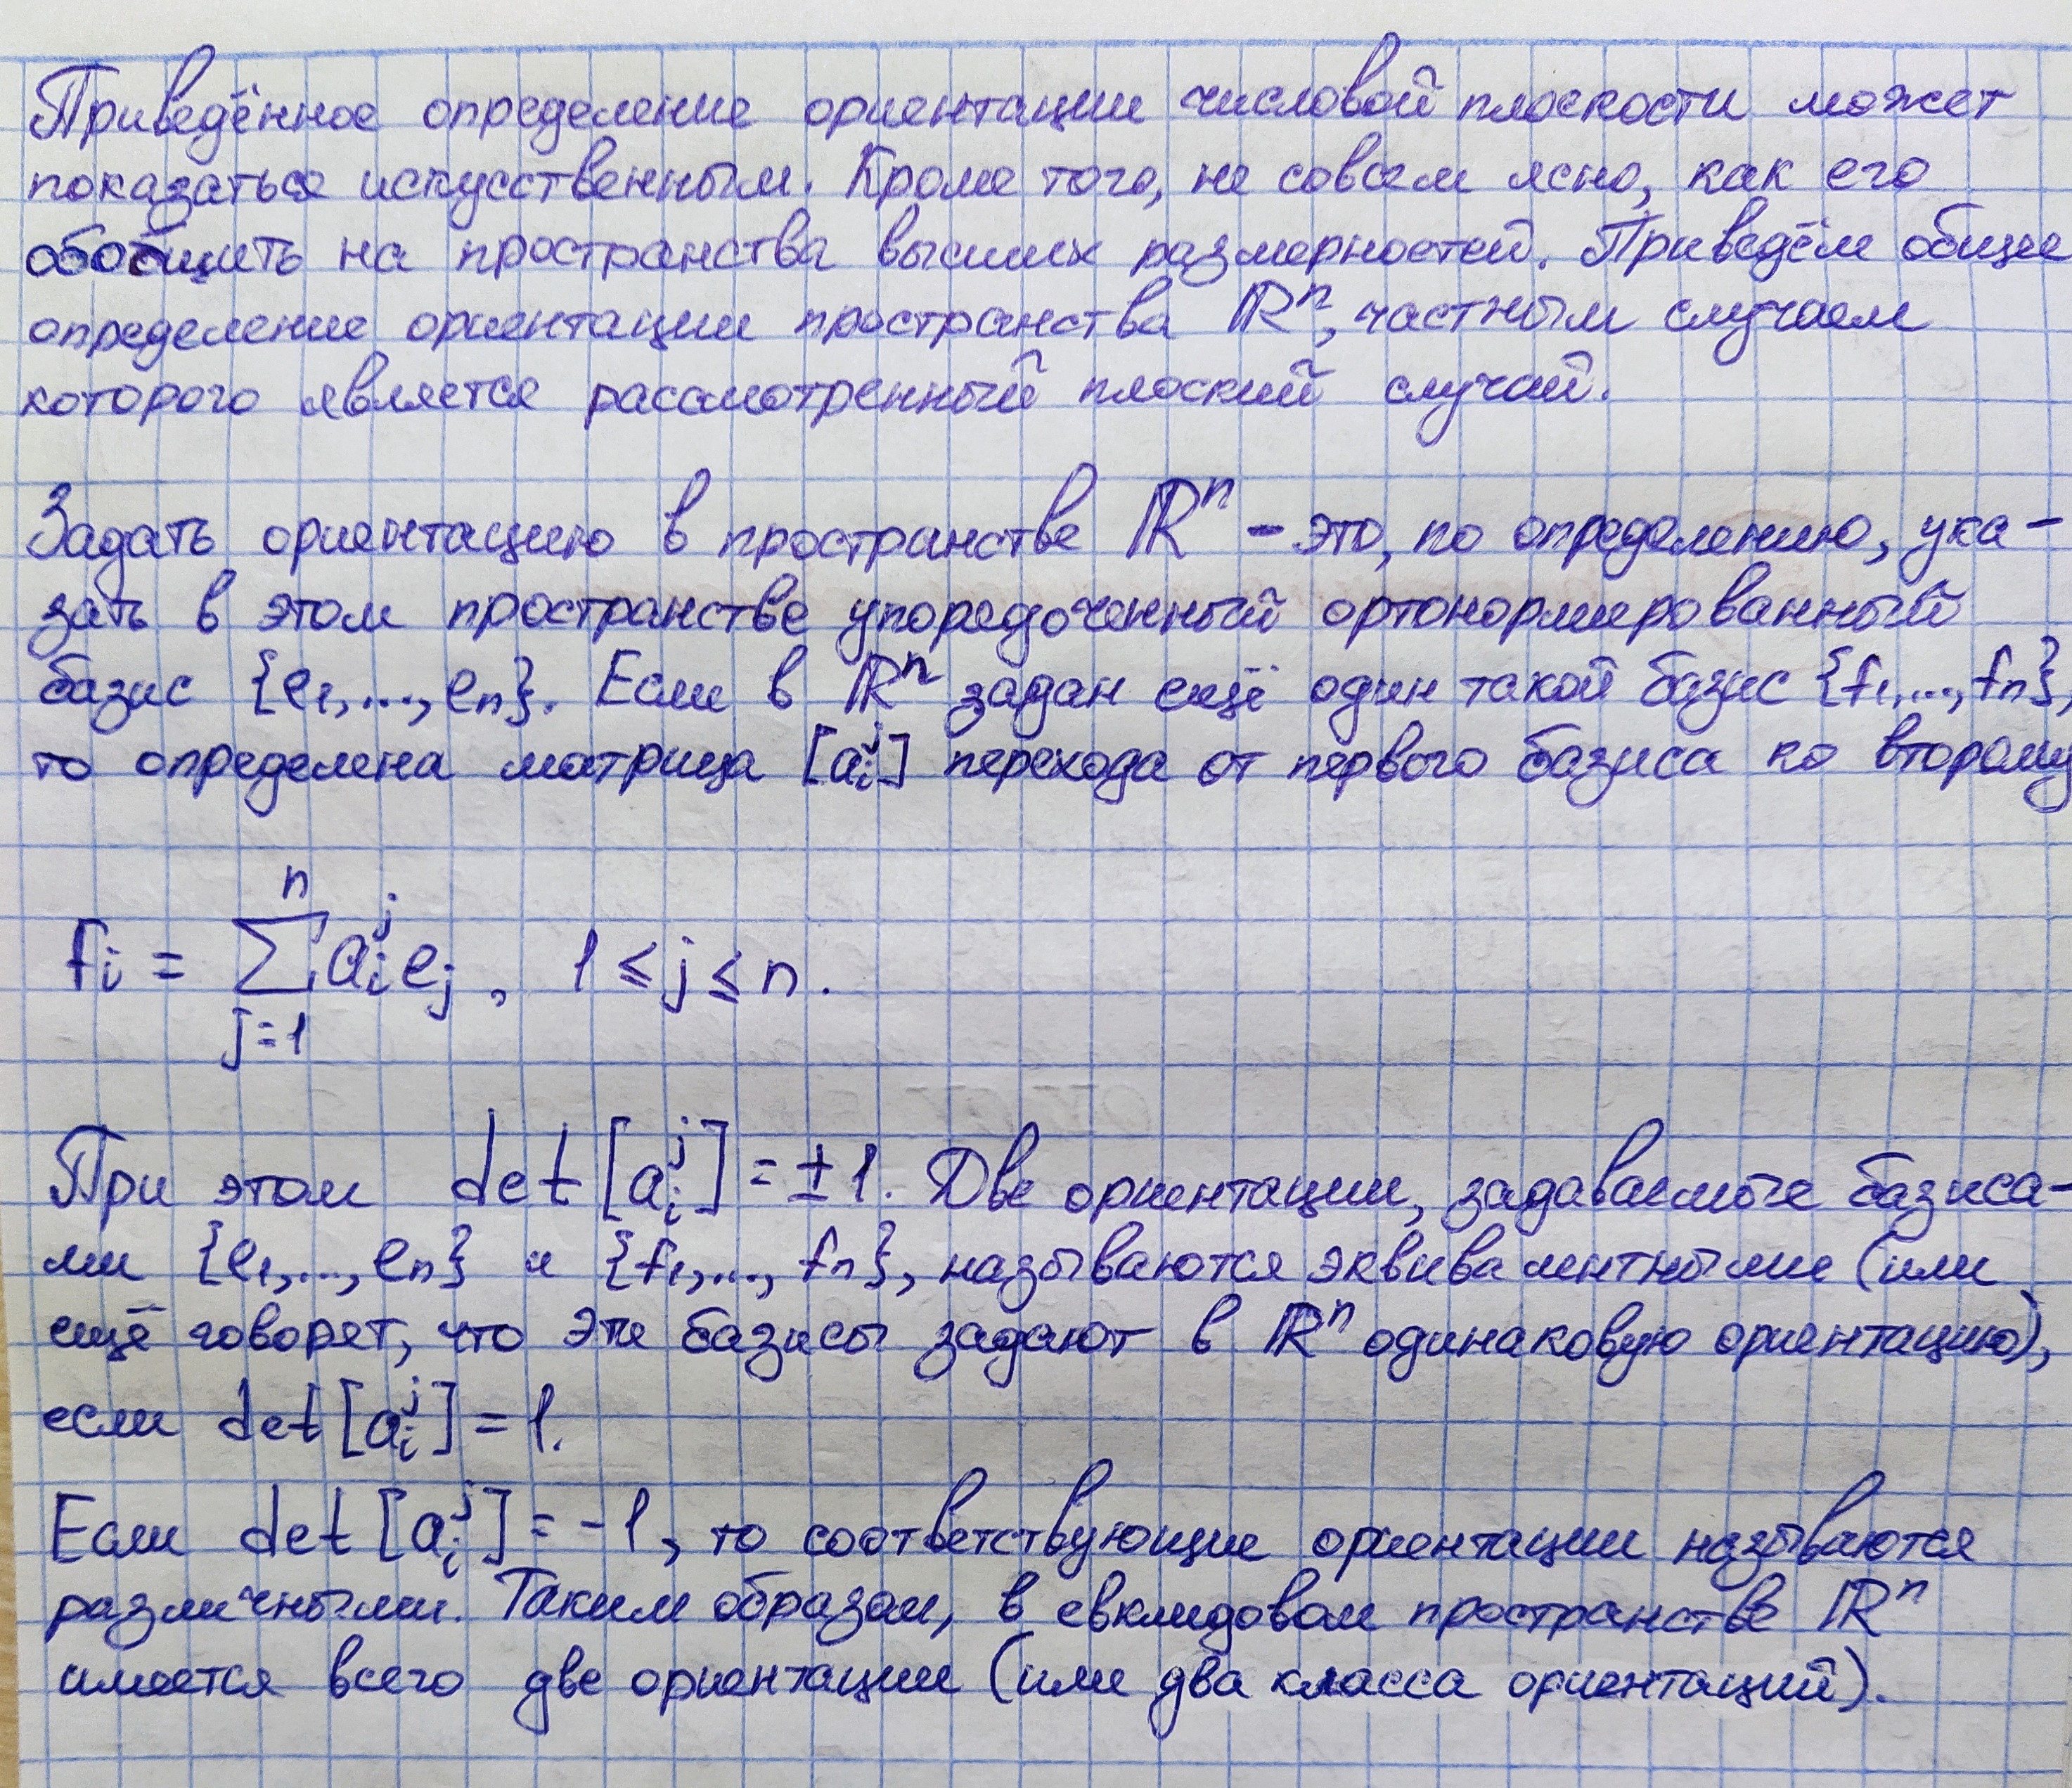 Приведённое определение ориентации числовой плоскости может
показаться искусственным. Кроме того, не совсем ясно, как его
обобщить на пространства высших размерностей. Приведём общее
определение ориентации пространства ℝⁿ, частным случаем
которого является рассмотренный плоский случай.
Задать ориентацию в пространстве ℝⁿ - это, по определению, ука-
зать в этом пространстве упорядоченный ортонормированный
базис {e₁,...,eₙ}. Если в ℝⁿ задан ещё один такой базис {f₁,...,fₙ},
то определена матрица [aᵢʲ] перехода от первого базиса ко второму
fᵢ = ∑ⱼ₌₁ⁿ aᵢʲ eⱼ, 1 ≤ j ≤ n.
При этом det [aᵢʲ] = ±1. Две ориентации, задаваемые базиса-
ми {e₁,...,eₙ} и {f₁,...,fₙ}, называются эквивалентными (или
ещё говорят, что эти базисы задают в ℝⁿ одинаковую ориентацию),
если det [aᵢʲ] = 1.
Если det [aᵢʲ] = -1, то соответствующие ориентации называются
различными. Таким образом, в евклидовом пространстве ℝⁿ
имеется всего две ориентации (или два класса ориентаций).